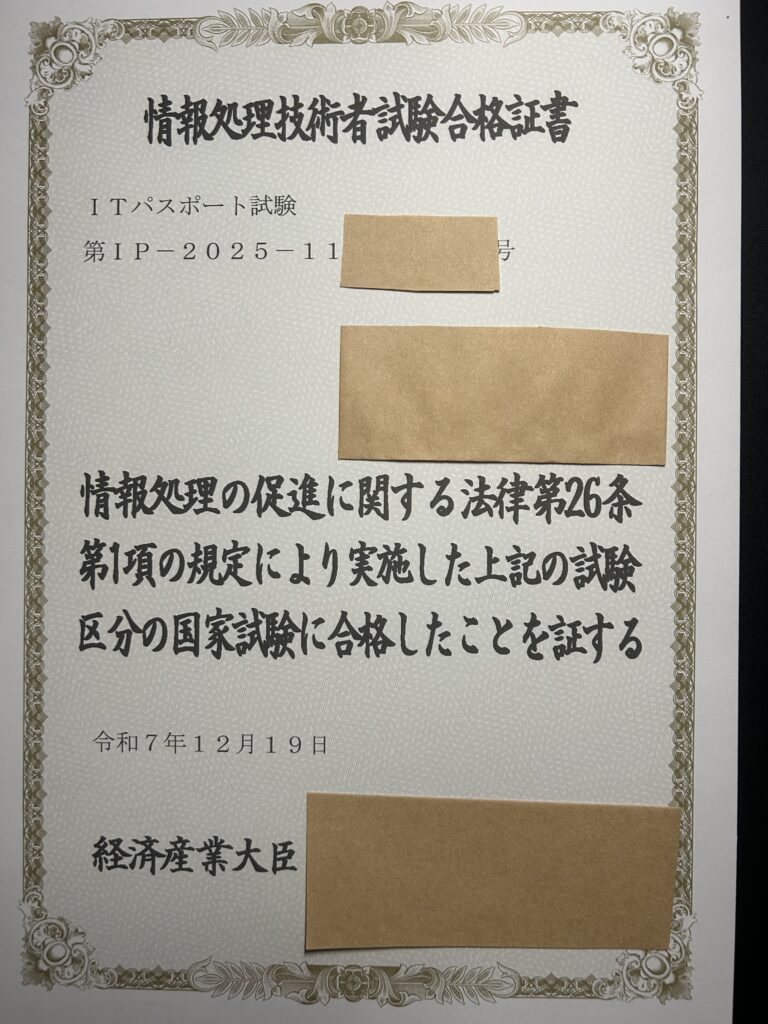 情報処理技術者試験合格証書
ＩＴパスポート試験
第ＩＰ－２０２５－１１ 号
情報処理の促進に関する法律第26条
第1項の規定により実施した上記の試験
区分の国家試験に合格したことを証する
令和７年１２月１９日
経済産業大臣